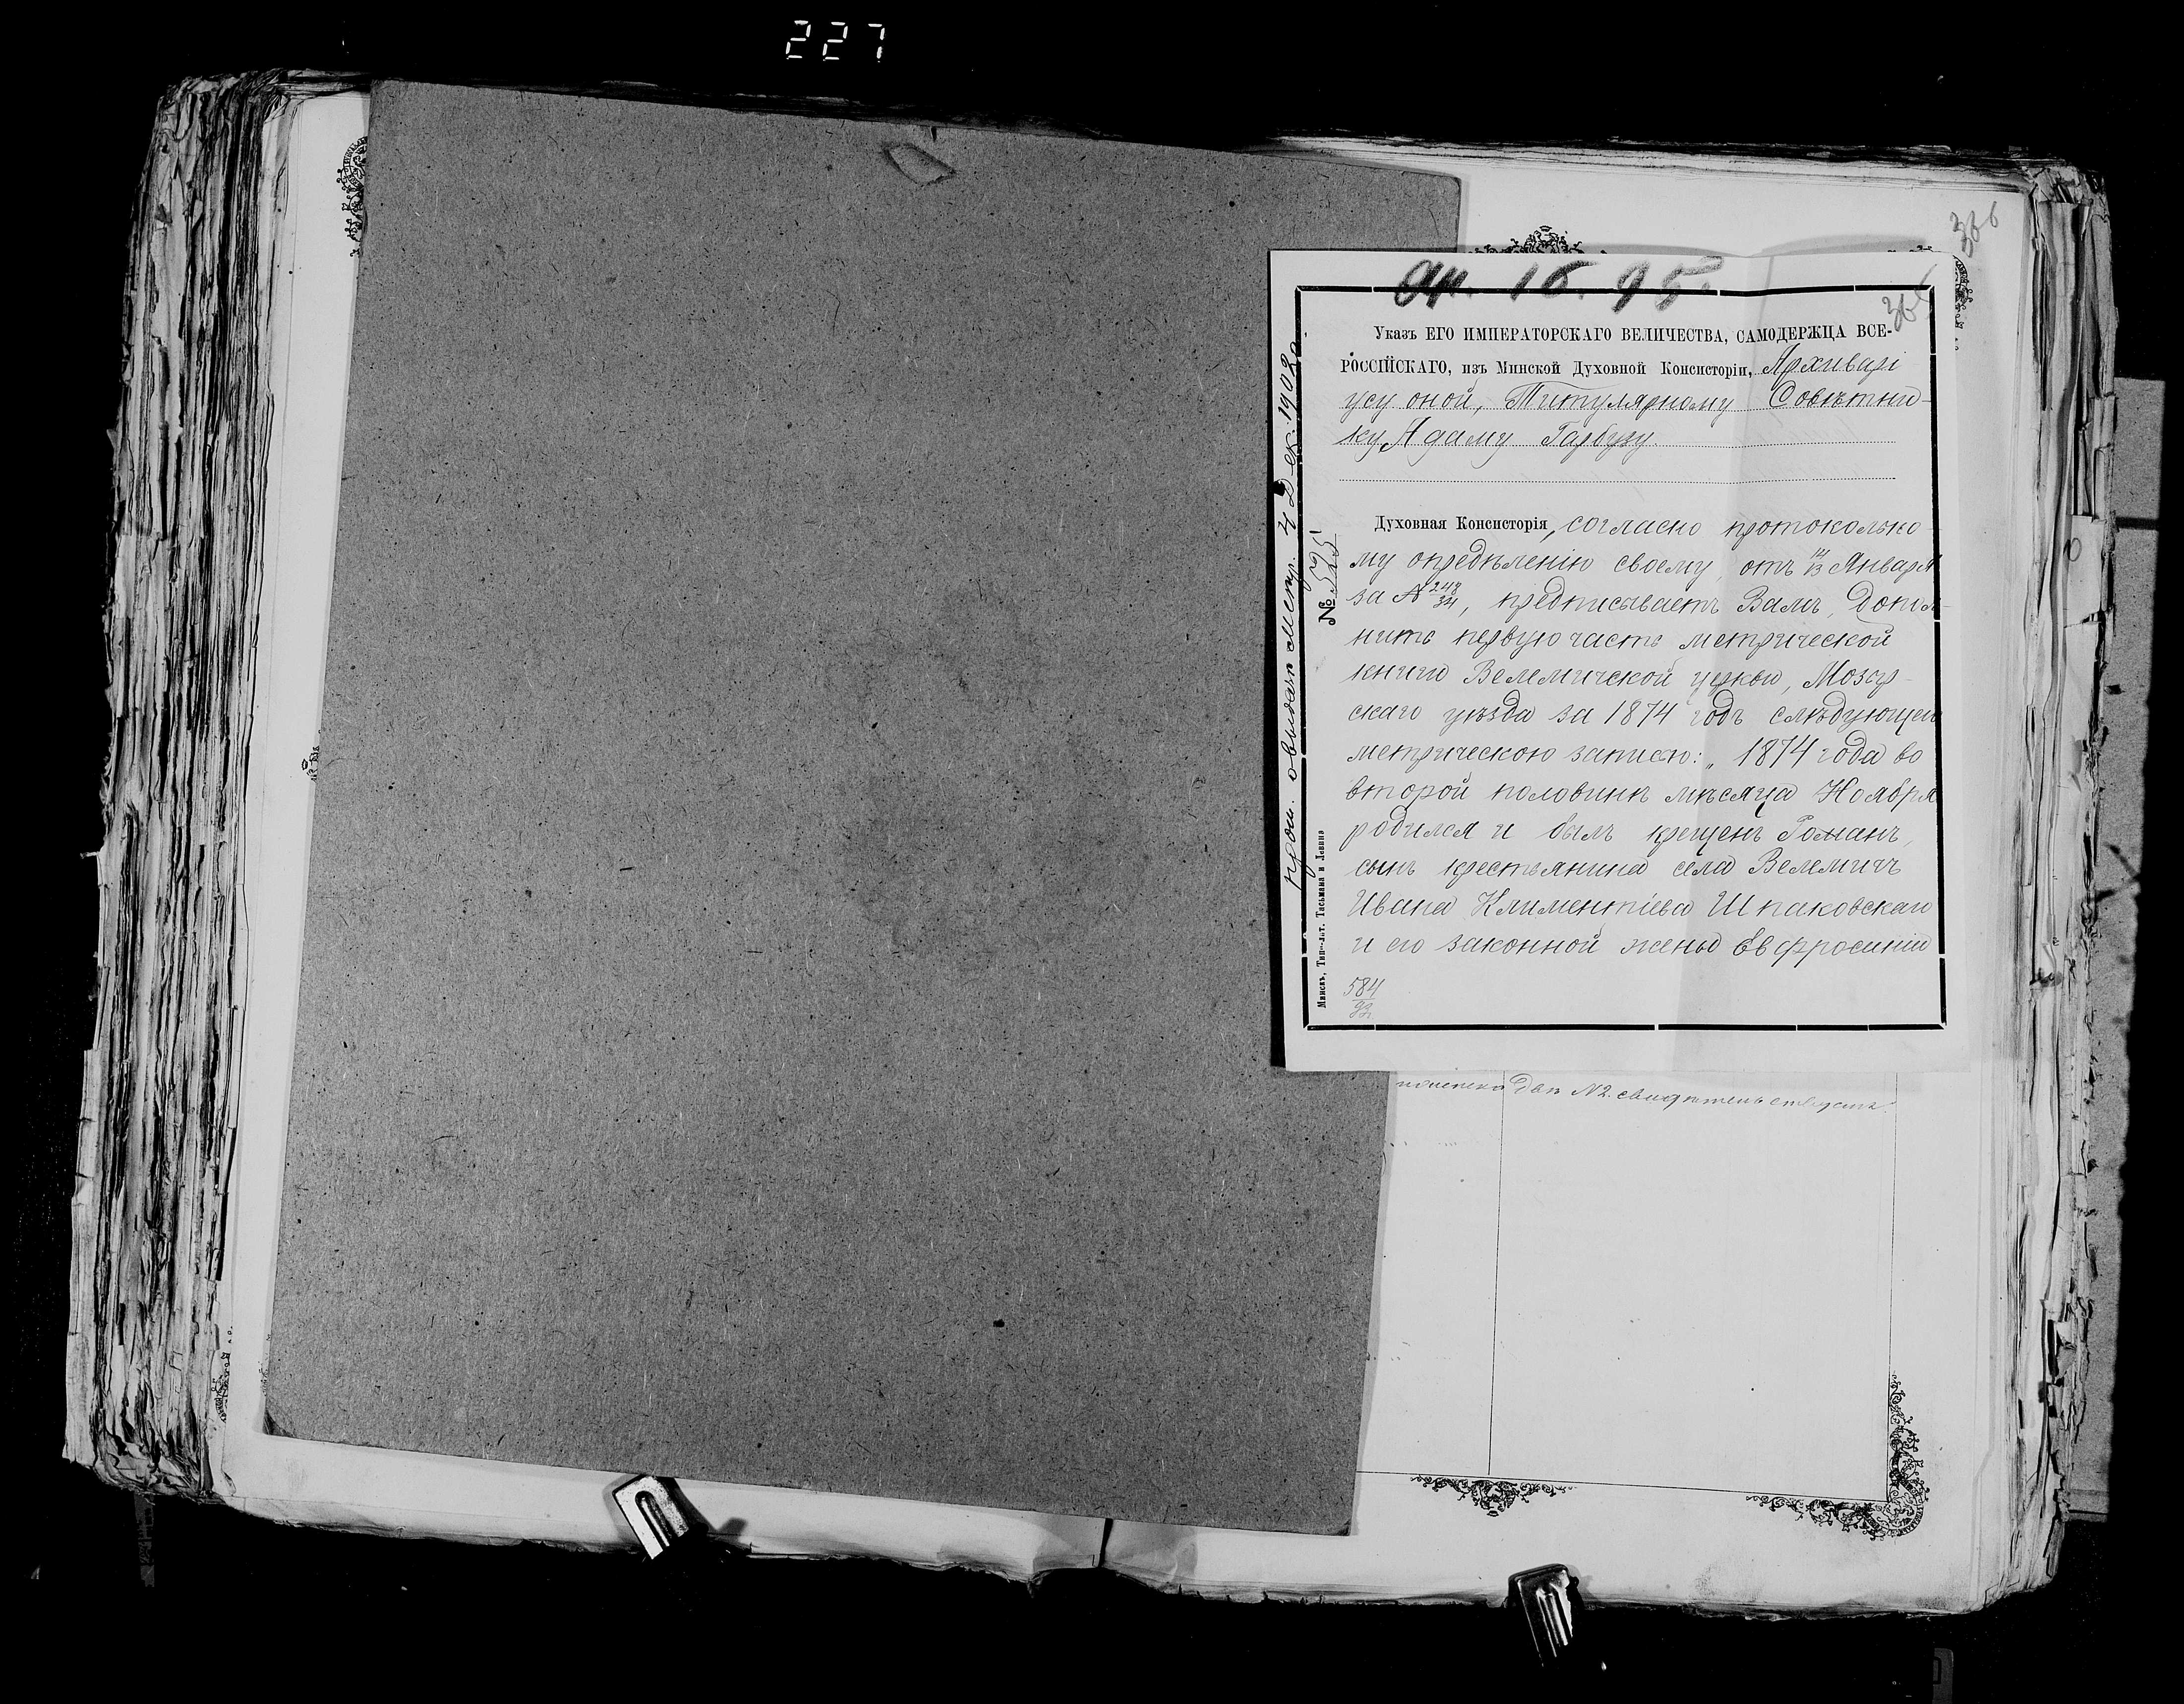 227
336
Ар. 16. 95.
Указъ ЕГО ИМПЕРАТОРСКАГО ВЕЛИЧЕСТВА, САМОДЕРЖЦА ВСЕ-
РОССІЙСКАГО, изъ Минской Духовной Консисторіи, Архиварі
усу оной, Титулярному Совѣтни-
ку Адаму Гарбузу.
Духовная Консисторія, согласно протокольно-
му опредѣленію своему, отъ 11/13 Января
за № 248/34, предписываетъ Вамъ, допол-
нить первую часть метрической
книги Велемичской церкви, Мозыр-
скаго уѣзда за 1874 годъ слѣдующею
метрическою записью: „1874 года во
второй половинѣ мѣсяца Ноября
родился и былъ крещенъ Романъ,
сынъ крестьянина села Велемичъ
Ивана Климентіева Шпаковскаго
и его законной жены Евфросиніи
584/93
№ 525
Минскъ, Типо-лит. Тасьмана и Левина
о выдачи метр. 4 Дек. 1902 г.
данъ №2. свидѣтельствуетъ